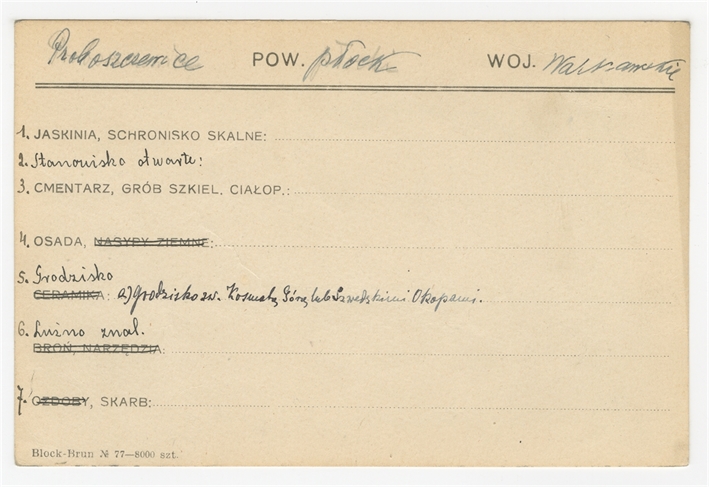 Proboszczewice POW. płocki WOJ. Warszawskie
1. JASKINIA, SCHRONISKO SKALNE:
2. Stanowisko otwarte:
3. CMENTARZ, GRÓB SZKIEL. CIAŁOP.:
4. OSADA, NASYPY ZIEMNE:
5. Grodzisko
CERAMIKA: a) Grodzisko zw. Kosmatą Górą lub Szwedzkimi Okopami.
6. Luźno znal.
BROŃ, NARZĘDZIA:
7. OZDOBY, SKARB:
Block-Brun № 77—8000 szt.